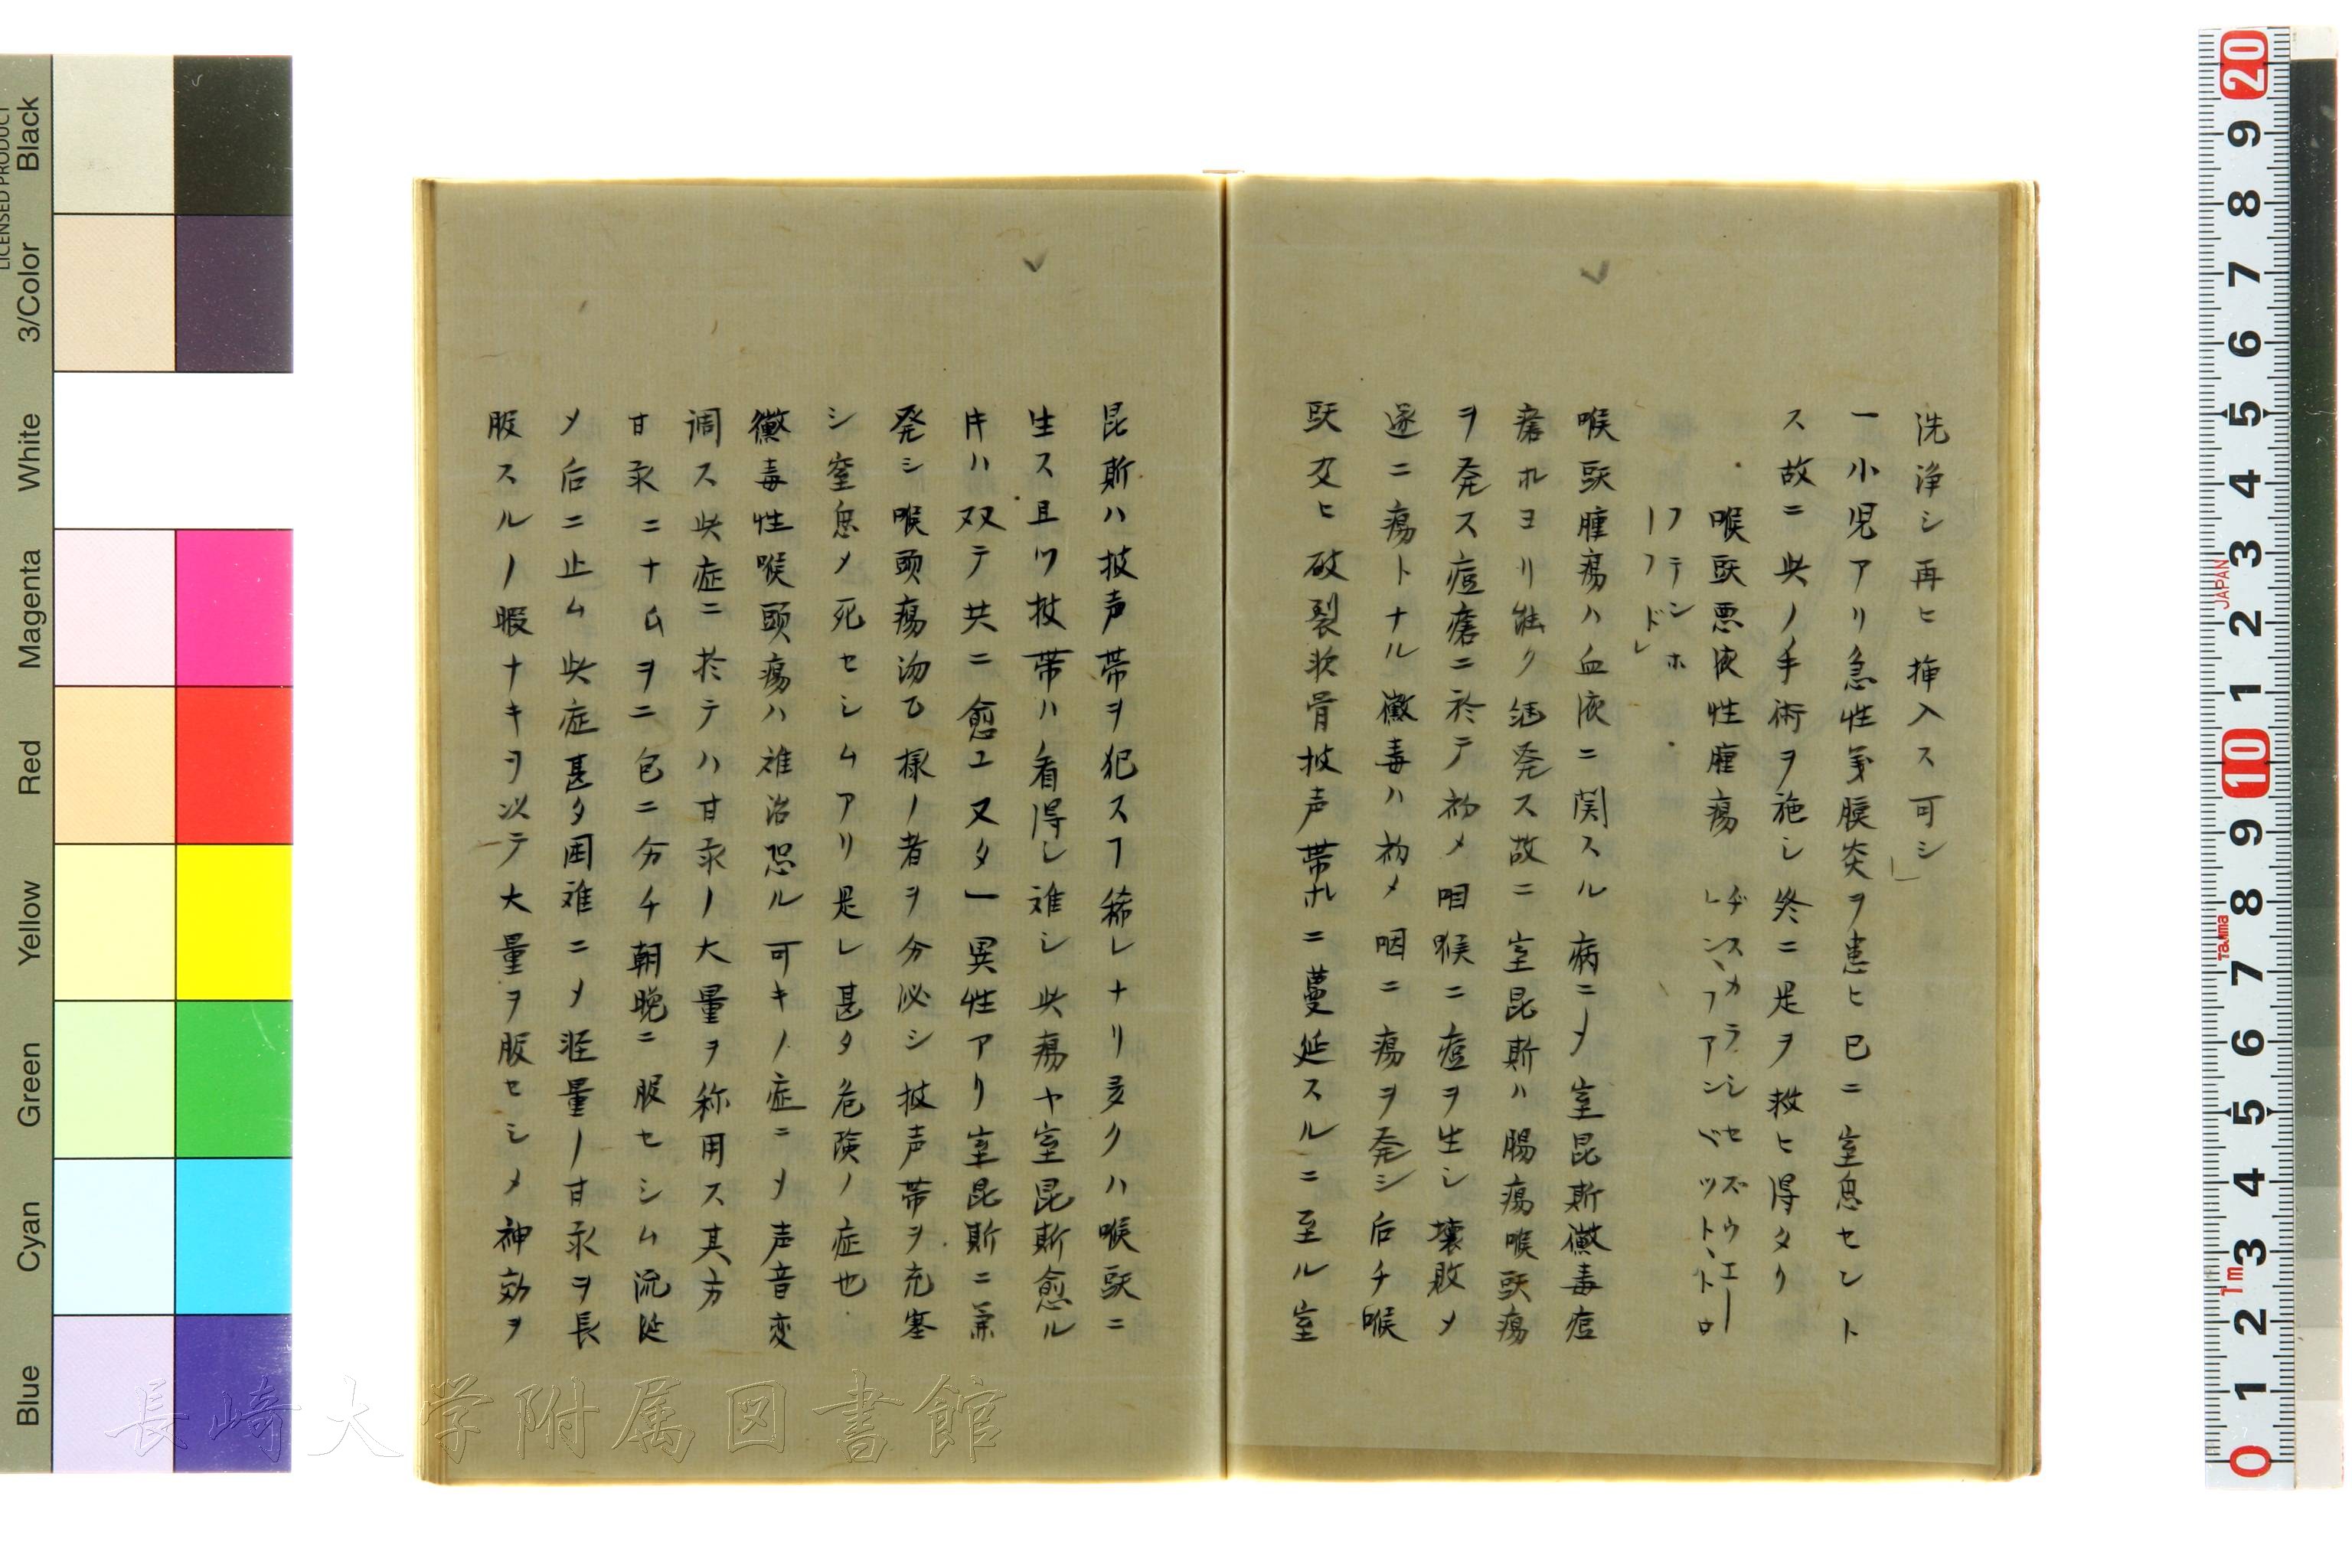 洗浄シ再ヒ挿入ス可シ」
一小児アリ急性気膜炎ヲ患ヒ已ニ窒息セント
ス故ニ此ノ手術ヲ施シ終ニ是ヲ救ヒ得タリ
喉頭悪液性腫瘍
ヂスカラシセズウエー
レンフアンベツトトロ
フテンホ
フドレ
喉頭腫瘍ハ血液ニ関スル病ニメ室昆斯黴毒痘
瘡ホヨリ能ク発ス故ニ室昆斯ハ腸瘍喉頭瘍
ヲ発ス痘瘡ニ於テ初メ咽喉ニ痘ヲ生シ壊敗メ
遂ニ瘍トナル黴毒ハ初メ咽ニ瘍ヲ発シ后チ喉
頭及ヒ破裂状骨披声帯ホニ蔓延スルニ至ル室
昆斯ハ披声帯ヲ犯スヿ稀レナリ多クハ喉頭ニ
生ス且ツ披帯ハ看得シ难シ此瘍ヤ室昆斯愈ル
牜ハ双テ共ニ愈ユ又タ一異性アリ室昆斯ニ兼
発シ喉頭瘍沕乙様ノ者ヲ分泌シ披声帯ヲ充塞
シ窒息メ死セシムアリ是レ甚タ危険ノ症也
黴毒性喉頭瘍ハ难治恐ル可キノ症ニメ声音変
调ス此症ニ於テハ甘汞ノ大量ヲ称用ス其方
甘汞ニ十ムヲ二包ニ分チ朝晩ニ服セシム流涎
メ后ニ止ム此症甚タ困难ニメ涇量ノ甘汞ヲ長
服スルノ暇ナキヲ以テ大量ヲ服セシメ神効ヲ
Black
3/Color
White
Magenta
Red
Yellow
Green
Cyan
Blue
LICENSED PRODUCT
20
9
8
7
6
5
4
3
2
1
10
9
8
7
6
5
4
3
2
1
0
JAPAN
Tajima
1m
長崎大学附属図書館